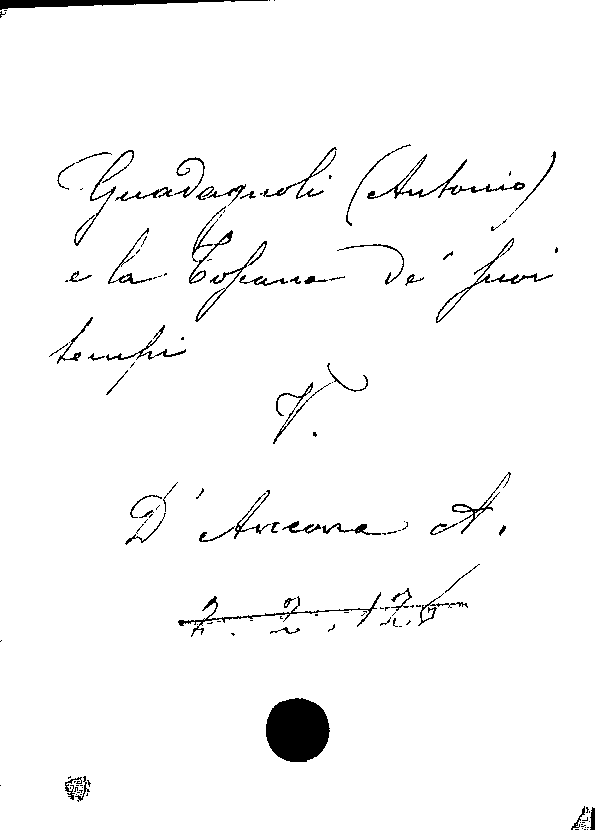 Guadagnoli (Antonio)
e la Toscana de' suoi
tempi
V.
D'Ancona A.
2. 2. 126